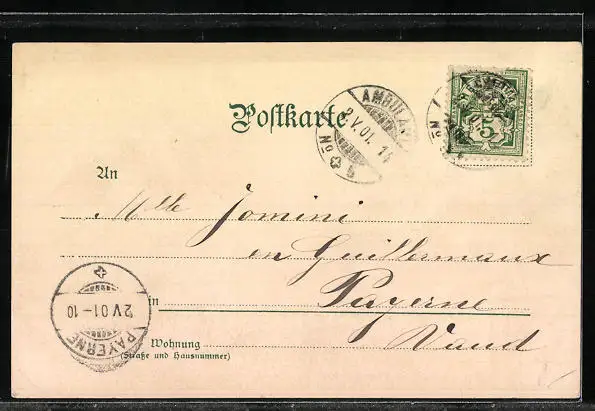 Postkarte
AMBULANT
2 V. 01. 14
No 5
HELVETIA
5
No
An
Mlle Jomini
en Guillermaux
in Payerne
Wohnung
Vaud
(Straße und Hausnummer)
2 V 01 - 10
PAYERNE